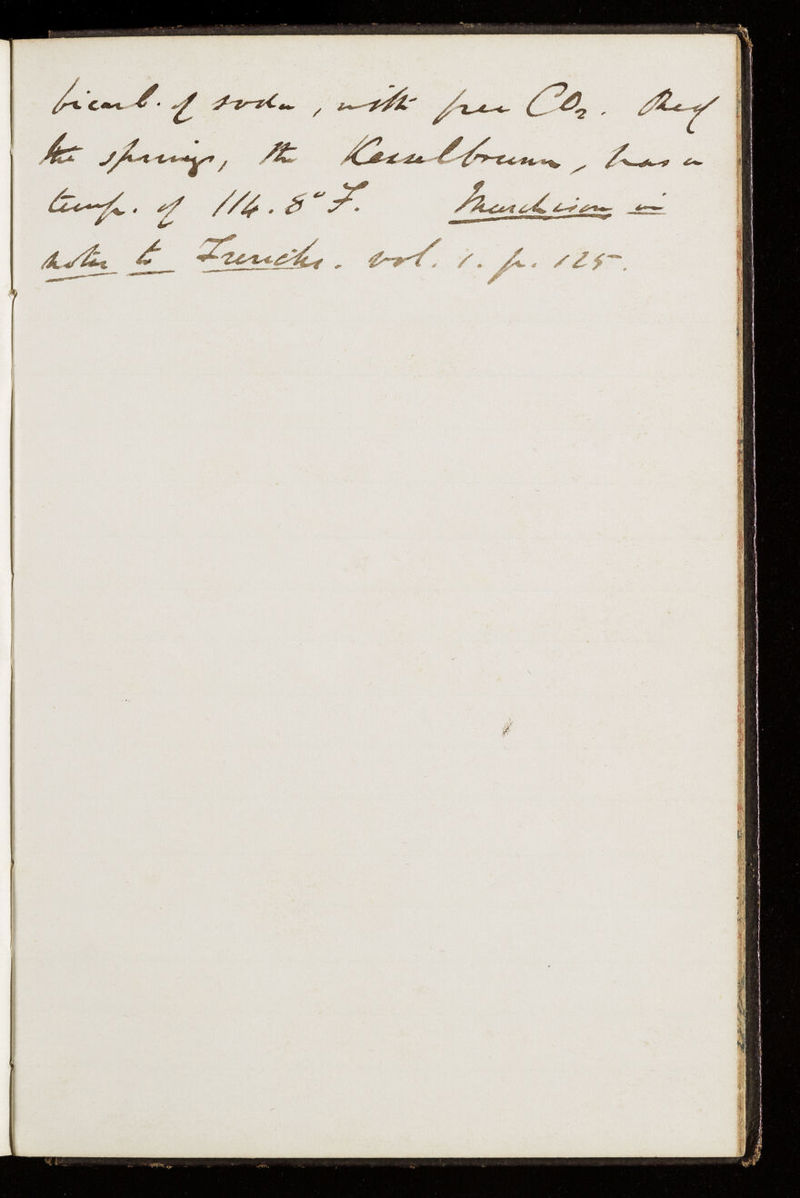 bicarb. of soda, with free CO₂. One of
the springs, the Kesselbrunn, has a
temp. of 114.8° F. Murchison in
notes to Frerichs. vol. 1. p. 125.